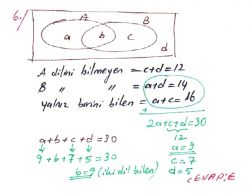 6.)
A B
a b c
d
A dilini bilmeyen = c+d=12
B " " = a+d=14
yalnız birini bilen = a+c=16
2a+c+d=30
12
a=9
c=7
d=5
a+b+c+d=30
9+b+7+5=30
b=9 (iki dil bilen)
CEVAP: E